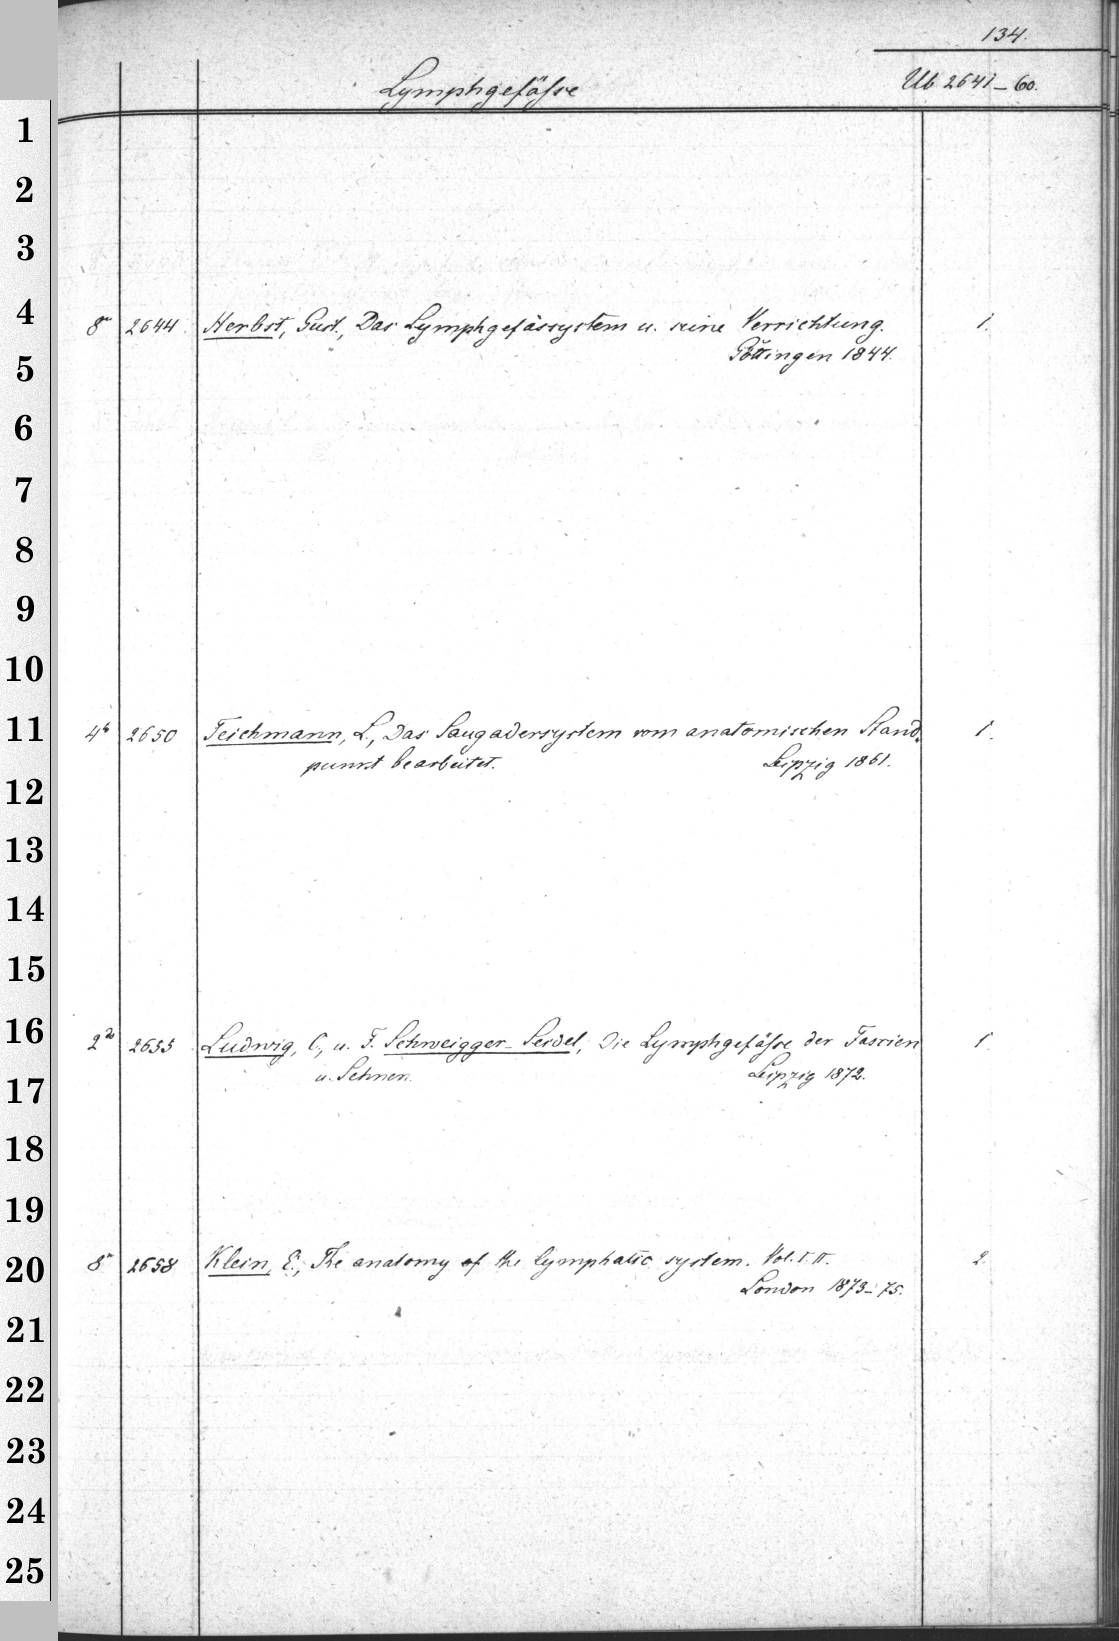 134.
Lymphgefässe
Ub 2641–60.
1
2
3
4
8° 2644. Herbst, Gust., Das Lymphgefässystem u. seine Verrichtung. 1.
Göttingen 1844.
5
6
7
8
9
10
11
4° 2650 Teichmann, L., Das Saugadersystem vom anatomischen Stand- 1.
punkt bearbeitet. Leipzig 1861.
12
13
14
15
16
2° 2655 Ludwig, C., u. F. Schweigger-Seidel, Die Lymphgefässe der Fascien 1.
u. Sehnen. Leipzig 1872.
17
18
19
20
8° 2658 Klein, E., The anatomy of the lymphatic system. Vol. I. II. 2.
London 1873–75.
21
22
23
24
25